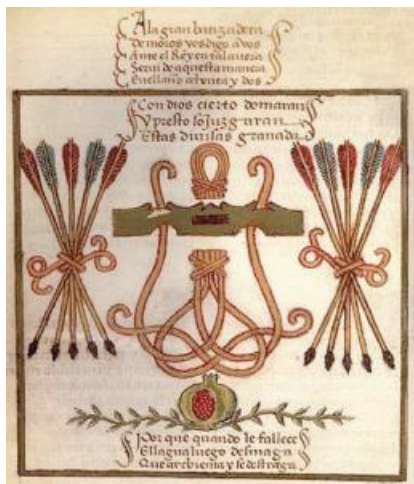 A la gran batizadera
de moros yos digo a vos
Ante el Rey en talauera
Serui de aquesta manera
En el año setenta y dos
Con dios cierto domaran
y presto sojuzgaran
Estas diuisas granada
Por que quando le fallece
El lagua luego desmaga
Que arebienta y se destraga